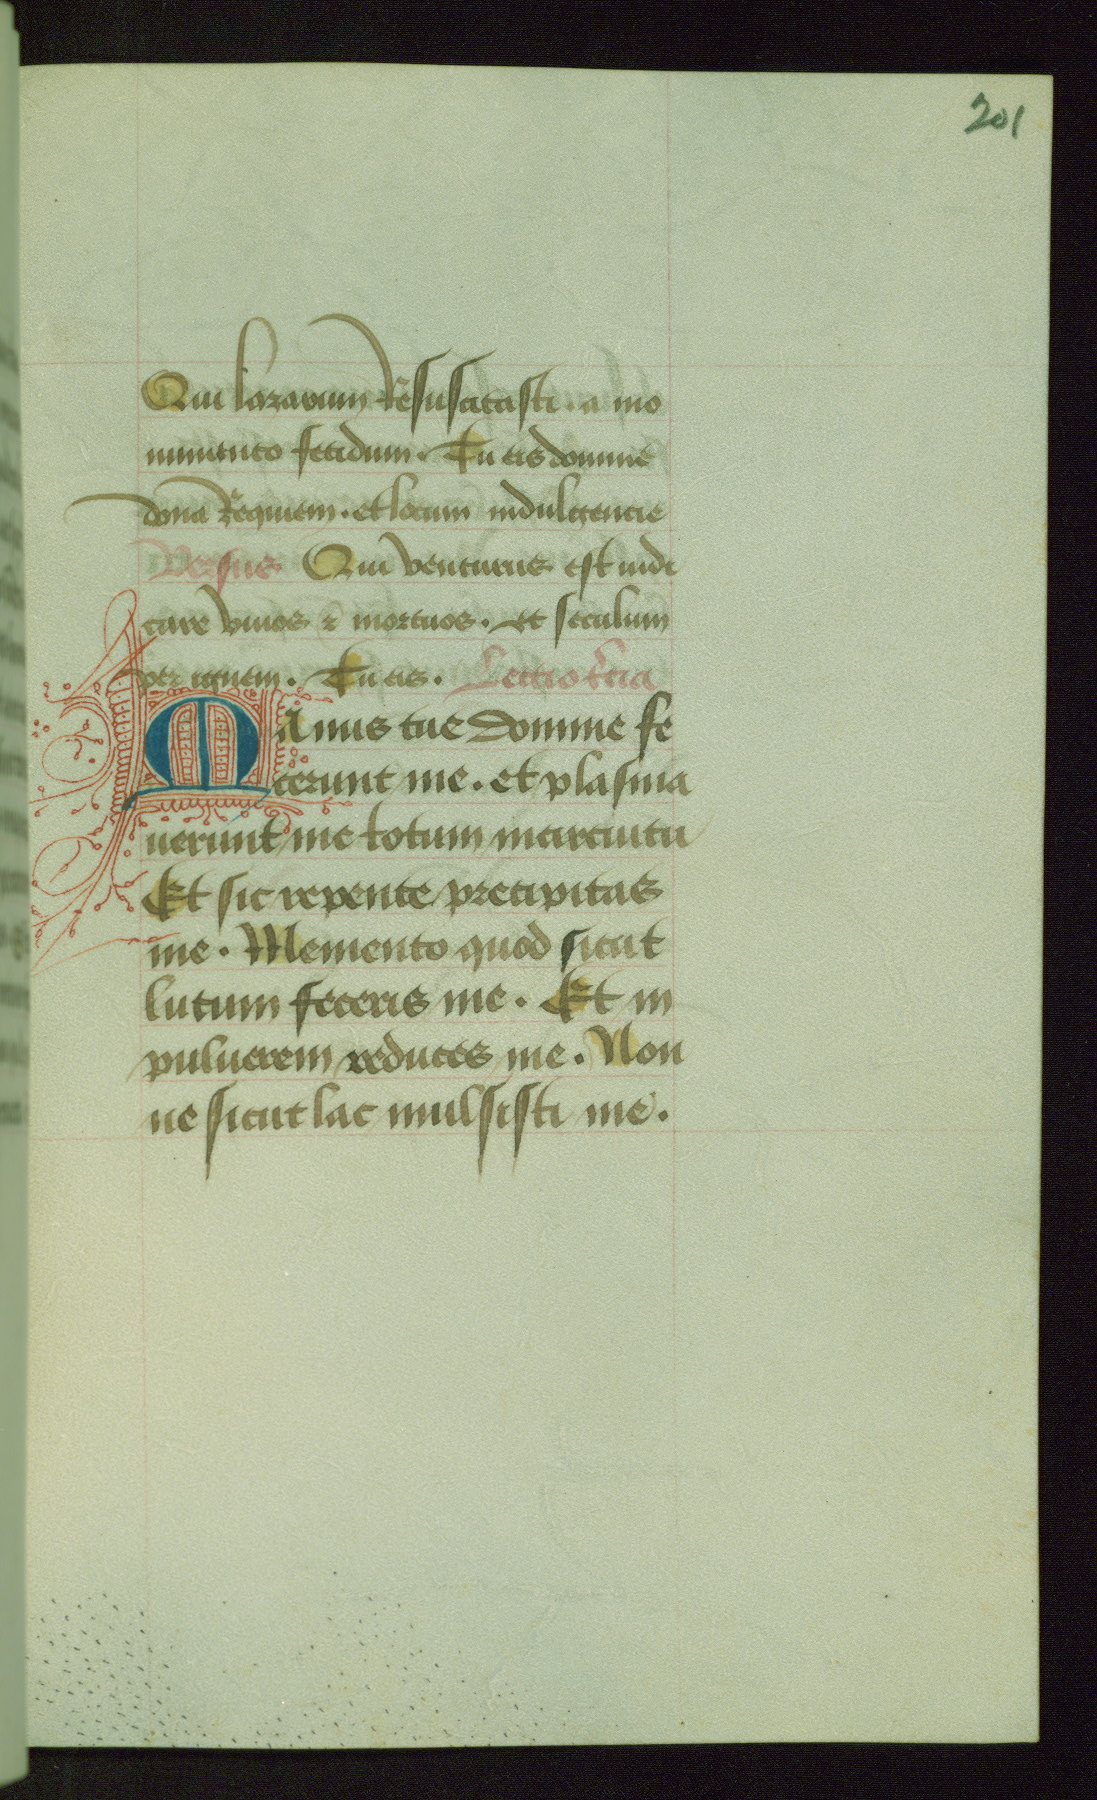 201
Qui lazarum Resuscitasti . a mo
numento fetidum . Tu eis domine
dona Requiem . et locum indulgencie
Versus Qui venturus est iudi
care viuos ⁊ mortuos . et seculum
per ignem . Tu eis . Lectio t̄cia
Manus tue domine fe
cerunt me . et plasma
uerunt me totum incircuitu
Et sic repente precipitas
me . Memento quod sicut
lutum feceris me . Et in
puluerem reduces me . Non
ne sicut lac mulsisti me .